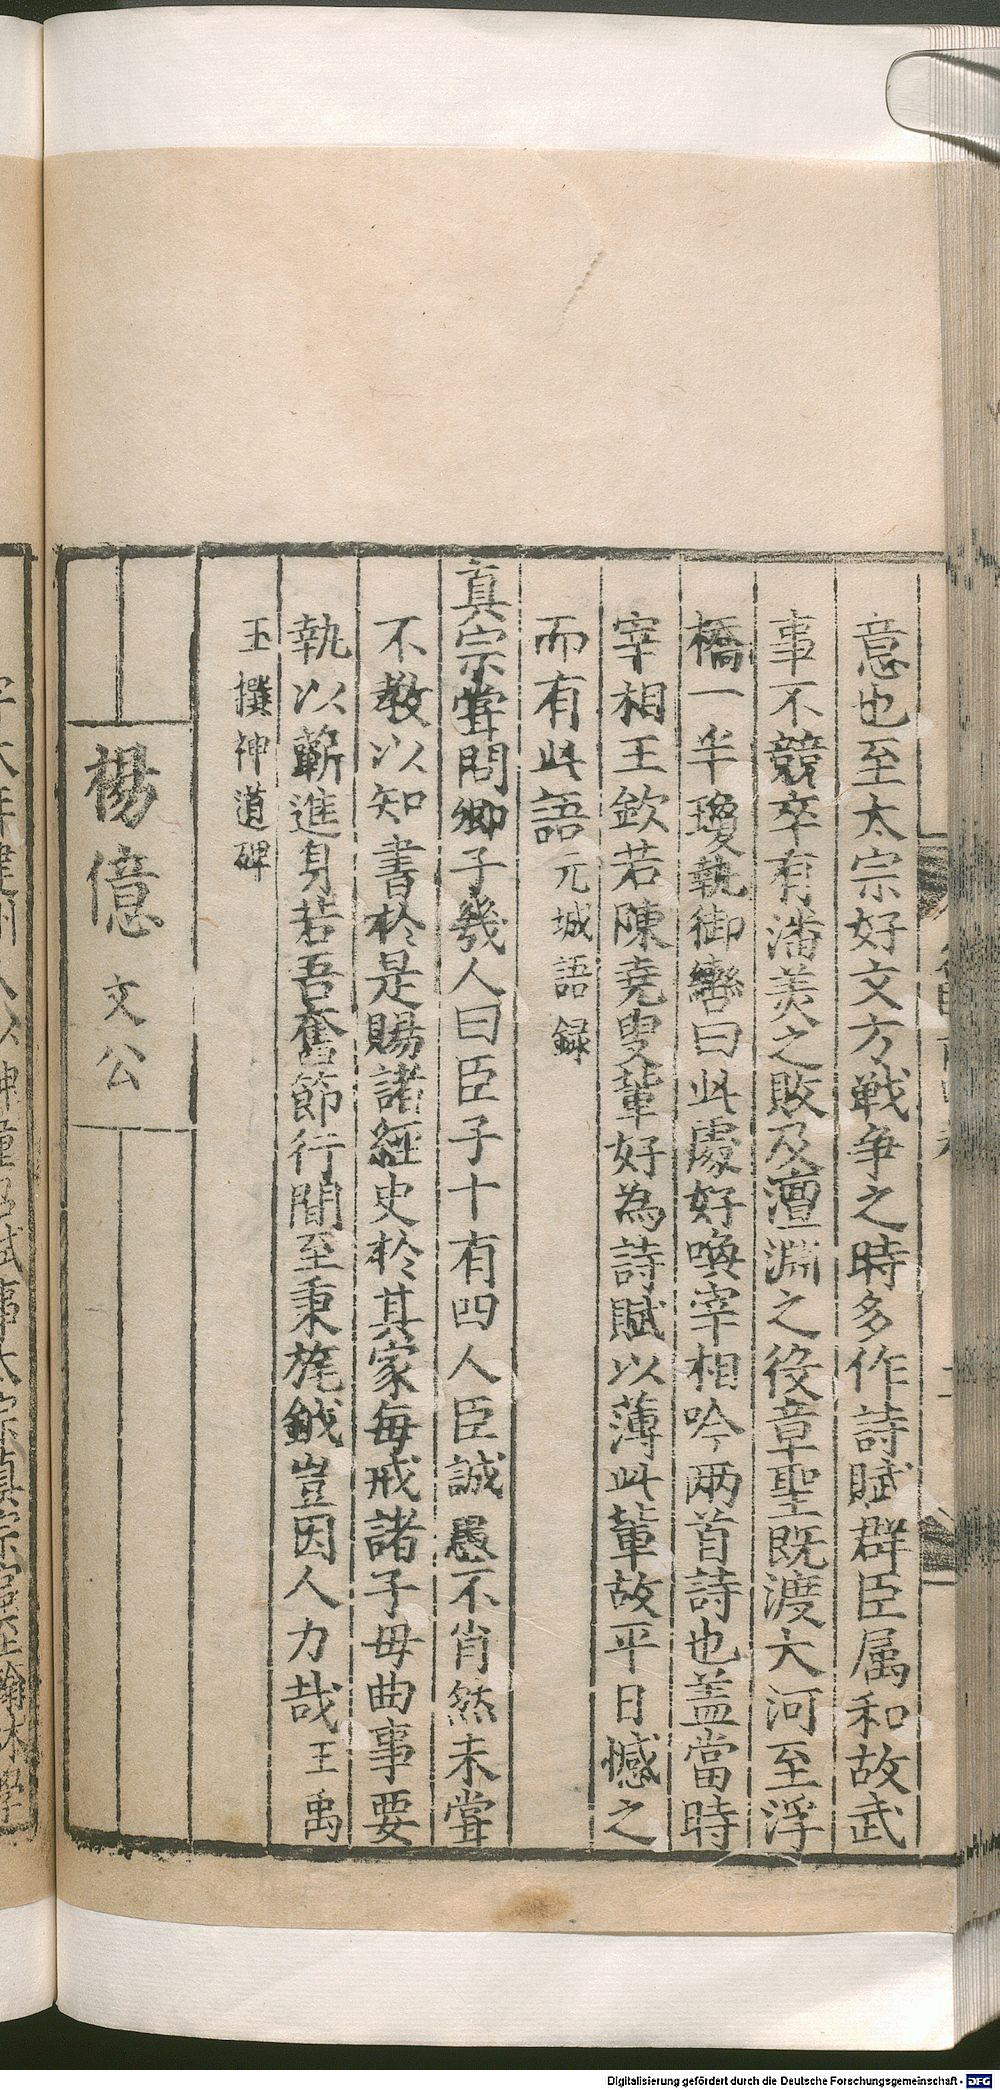 意也至太宗好文方戦争之時多作詩賦群臣属和故武
事不競卒有潘美之敗及澶淵之役章聖既渡大河至浮
橋一半瓊執御轡曰此處好喚宰相吟兩首詩也盖當時
宰相王欽若陳堯叟輩好為詩賦以薄此輩故平日憾之
而有此語元城語録
真宗甞問卿子幾人曰臣子十有四人臣誠愚不肖然未甞
不教以知書於是賜諸經史於其家每戒諸子毋曲事要
執以蘄進身若吾奮節行間至秉旄鉞豈因人力哉王禹
玉撰神道碑
楊億 文公
Digitalisierung gefördert durch die Deutsche Forschungsgemeinschaft - DFG